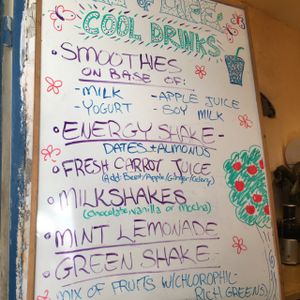 COOL DRINKS
• SMOOTHIES
ON BASE OF:
- MILK - APPLE JUICE
- YOGURT - SOY MILK
• ENERGY SHAKE -
DATES + ALMONDS
• FRESH CARROT JUICE
(Add: Beet/Apple/Ginger/Celery)
• MILKSHAKES
(chocolate, vanilla or mocha)
• MINT LEMONADE
• GREEN SHAKE
MIX OF FRUITS W/CHLOROPHIC
RICH GREENS)